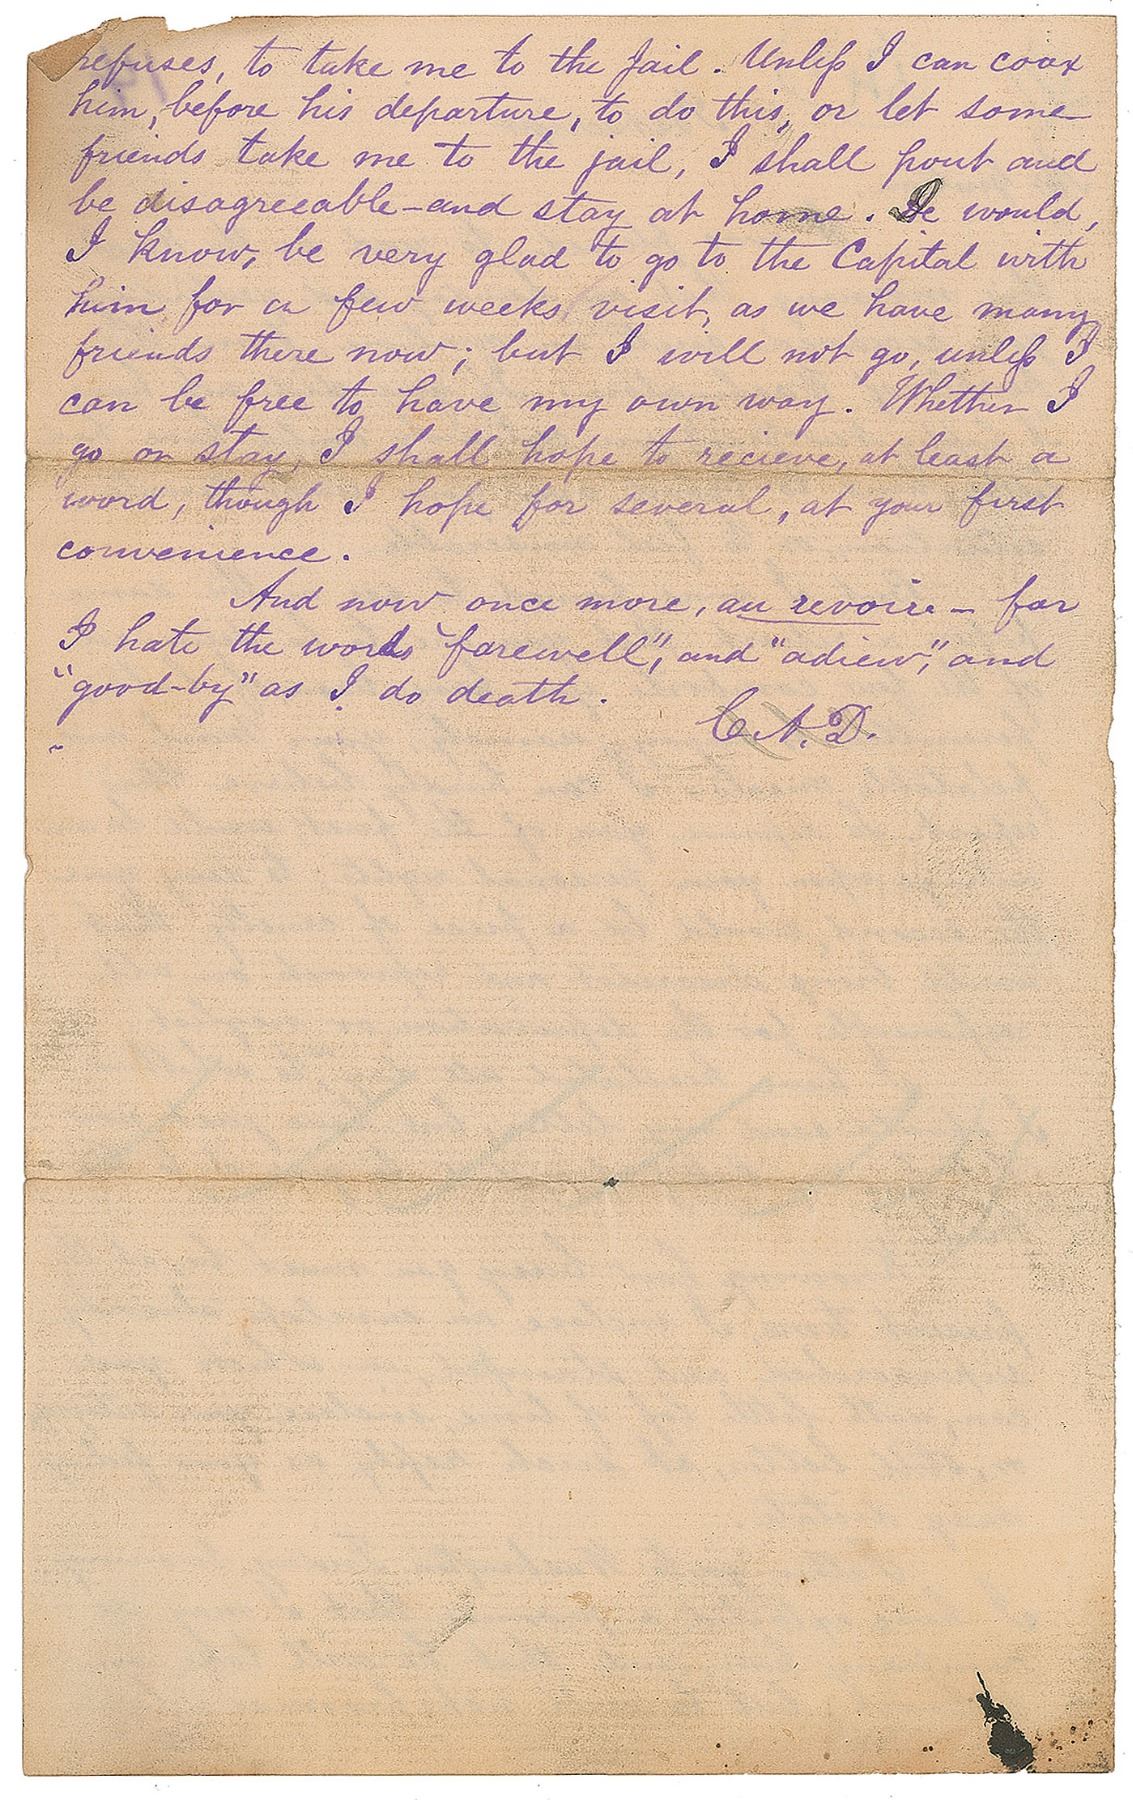 refuses, to take me to the Jail. Unless I can coax
him, before his departure, to do this, or let some
friends take me to the jail, I shall pout and
be disagreeable—and stay at home. I would,
I know, be very glad to go to the Capital with
him for a few weeks visit, as we have many
friends there now; but I will not go, unless I
can be free to have my own way. Whether I
go or stay, I shall hope to recieve, at least a
word, though I hope for several, at your first
convenience.
And now once more, au revoire— for
I hate the words "farewell", and "adiew", and
"good-by" as I do death.
C. A. D.